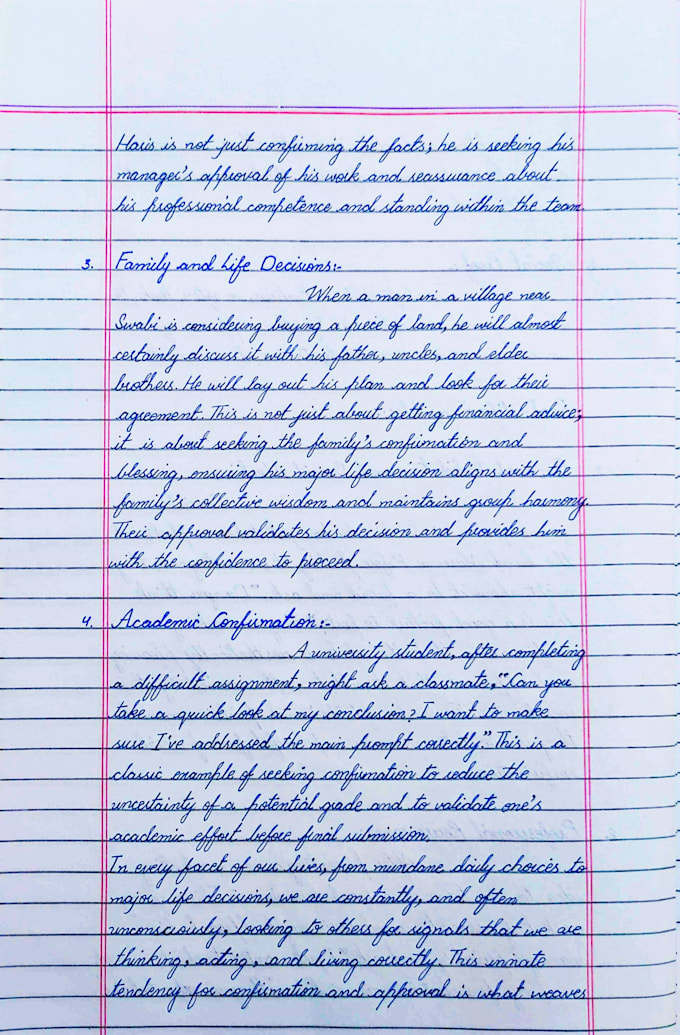 Haris is not just confirming the facts; he is seeking his
manager's approval of his work and reassurance about
his professional competence and standing within the team.
3. Family and Life Decisions:-
When a man in a village near
Swabi is considering buying a piece of land, he will almost
certainly discuss it with his father, uncles, and elder
brothers. He will lay out his plan and look for their
agreement. This is not just about getting financial advice;
it is about seeking the family's confirmation and
blessing, ensuring his major life decision aligns with the
family's collective wisdom and maintains group harmony.
Their approval validates his decision and provides him
with the confidence to proceed.
4. Academic Confirmation:-
A university student, after completing
a difficult assignment, might ask a classmate, "Can you
take a quick look at my conclusion? I want to make
sure I've addressed the main prompt correctly." This is a
classic example of seeking confirmation to reduce the
uncertainty of a potential grade and to validate one's
academic effort before final submission.
In every facet of our lives, from mundane daily choices to
major life decisions, we are constantly, and often
unconsciously, looking to others for signals that we are
thinking, acting, and living correctly. This innate
tendency for confirmation and approval is what weaves